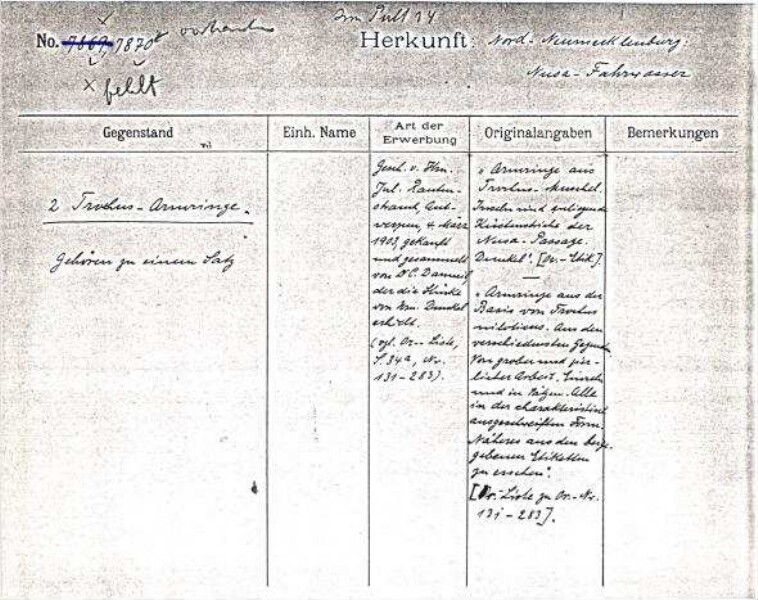 Im Pult 14
No. 7869, 7870 vorhanden
Herkunft: Nord-Neumecklenburg:
Nusa-Fahrwasser
x fehlt
Gegenstand
Einh. Name
Art der Erwerbung
Originalangaben
Bemerkungen
2 Trochus-Armringe.
Gehören zu einem Satz
Gesch. v. Hrn.
Jul. Rauten-
strauch, Ant-
werpen, 4 März
1903, gekauft
und gesammelt
von Dr C. Damm,
der die Stücke
von Hrn. Dunkel
erhielt.
(vgl. Or.-Liste,
S. 34a, Nr.
131-283).
"Armringe aus
Trochus-Muschel.
Inseln und umliegende
Küstenstriche der
Nusa-Passage.
Dunkel". [Or.-Etik].
"Armringe aus der
Basis von Trochus
niloticus. Aus den
verschiedensten Gegenden
Von grober und zier-
licher Arbeit. Einzeln
und in Sätzen. Alle
in der charakteristisch
ausgeschweiften Form.
Näheres aus den beige-
gebenen Etiketten
zu ersehen".
[Or.-Liste zu Or.-Nr.
131-283].